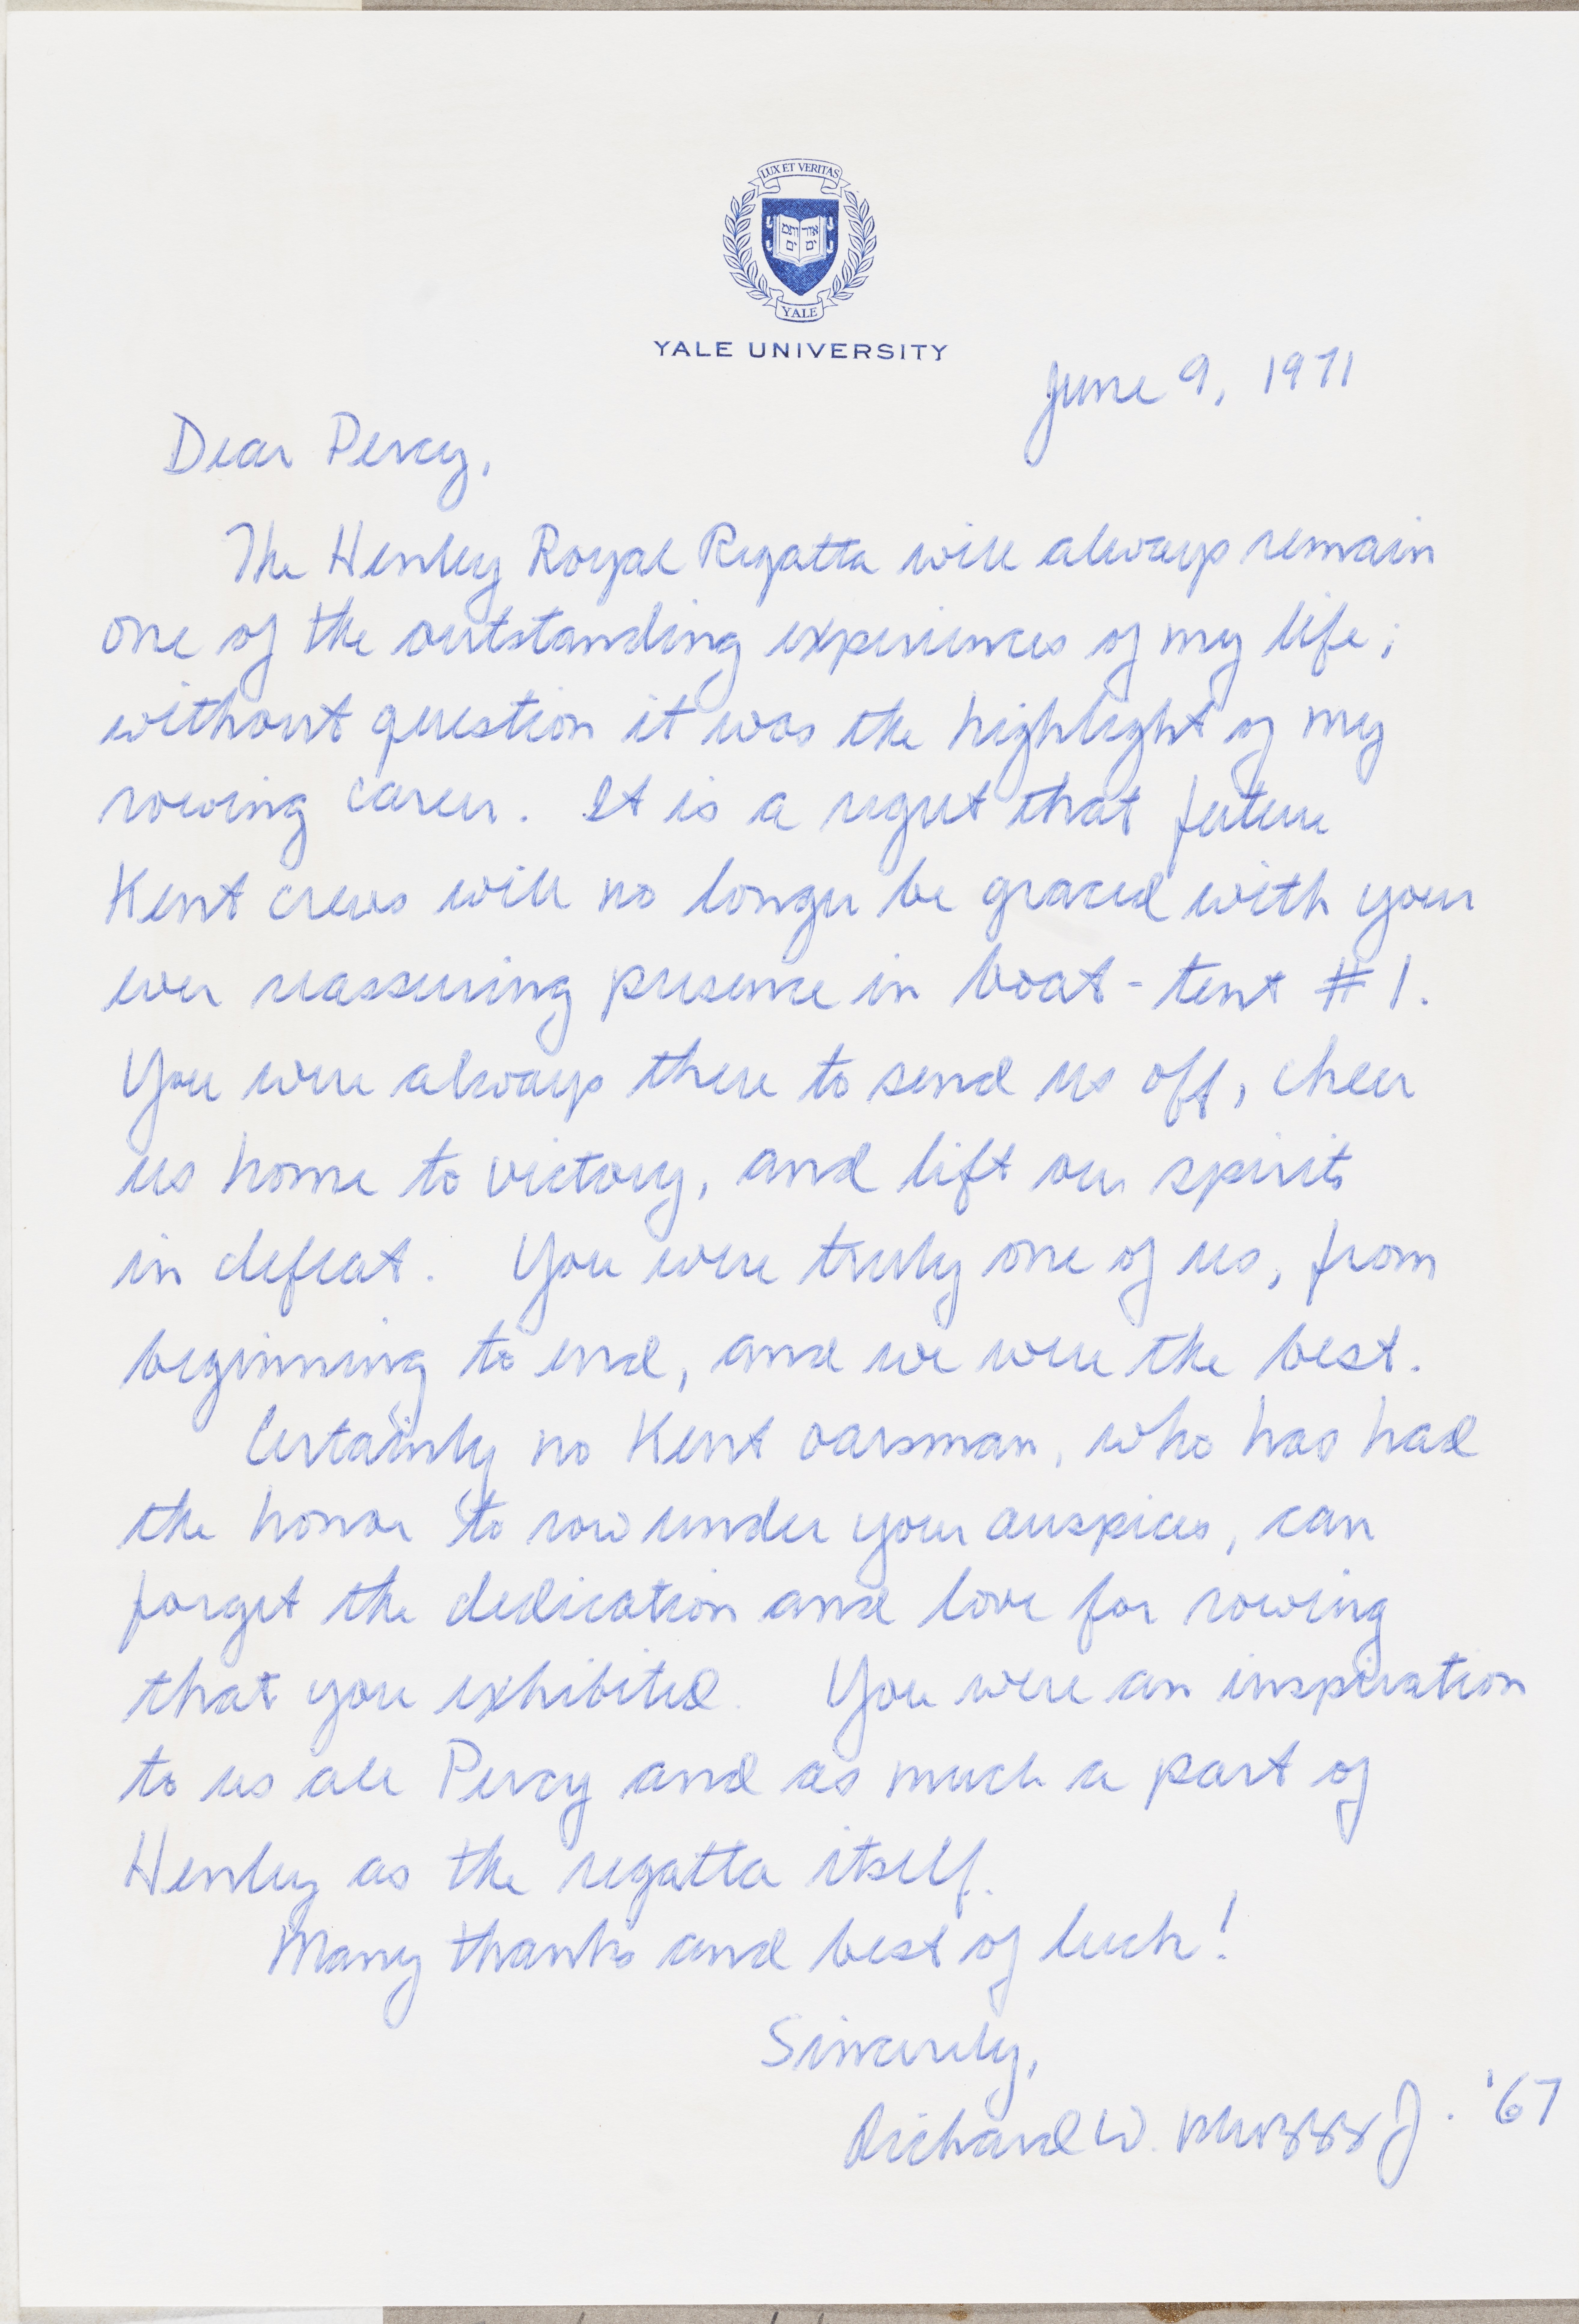 LUX ET VERITAS
אורים ותמים
YALE
YALE UNIVERSITY
June 9, 1971
Dear Percy,
The Henley Royal Regatta will always remain
one of the outstanding experiences of my life;
without question it was the highlight of my
rowing career. It is a regret that future
Kent crews will no longer be graced with your
ever reassuring presence in boat-tent #1.
You were always there to send us off, cheer
us home to victory, and lift our spirits
in defeat. You were truly one of us, from
beginning to end, and we were the best.
Certainly no Kent oarsman, who has had
the honor to row under your auspices, can
forget the dedication and love for rowing
that you exhibited. You were an inspiration
to us all Percy and as much a part of
Henley as the regatta itself.
Many thanks and best of luck!
Sincerely,
Richard W. J. '67